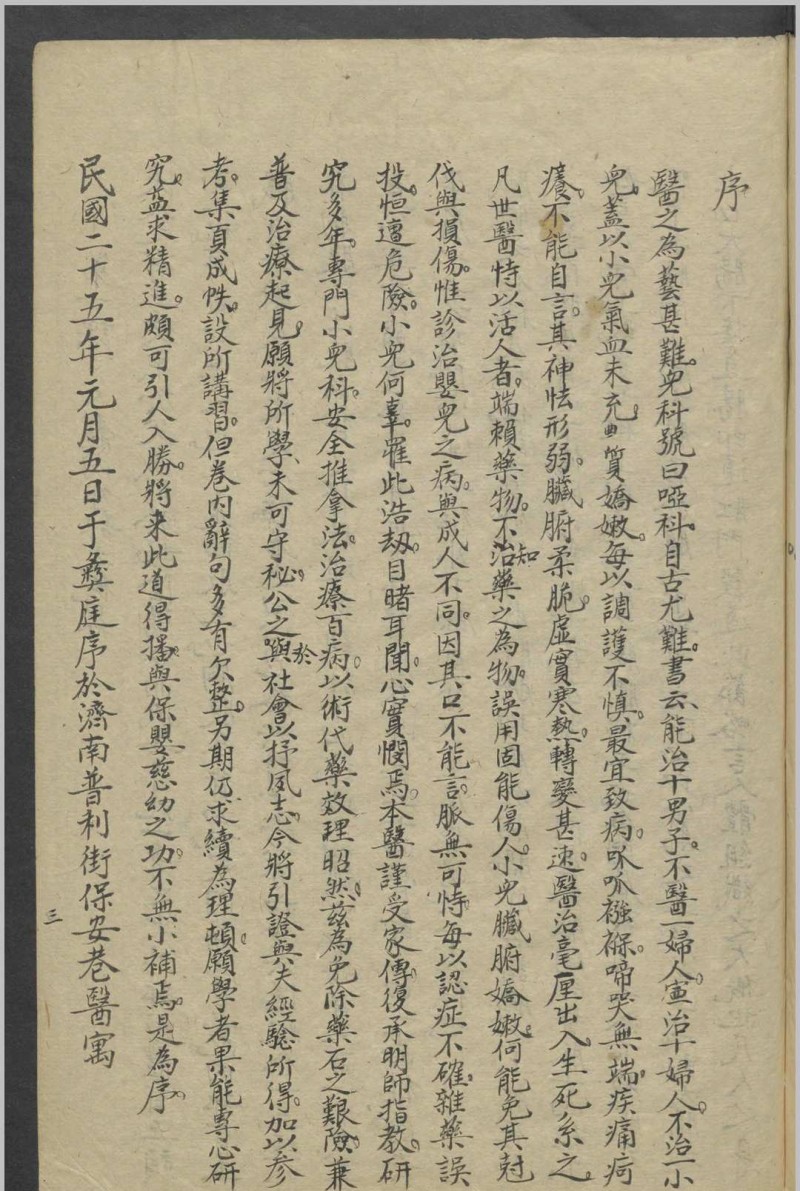 序
醫之為藝甚難。兒科號曰啞科。自古尤難。書云、能治十男子。不醫一婦人。寧治十婦人。不治一小
兒。蓋以小兒氣血未充。質嬌嫩。每以調護不慎。最宜致病。呱呱襁褓。啼哭無端。疾痛疴
癢。不能自言。其神怯形弱。臟腑柔脆。虛實寒熱。轉變甚速。醫治毫厘出入。生死系之。
凡世醫恃以活人者。端賴藥物。不知治藥之為物。誤用固能傷人。小兒臟腑嬌嫩。何能免其尅
伐與損傷。惟診治嬰兒之病。與成人不同。因其口不能言。脈無可恃。每以認症不確。雜藥誤
投。恒遭危險。小兒何辜。罹此浩劫。目睹耳聞。心實憫焉。本醫謹受家傳。復承明師指教。研
究多年。專門小兒科。安全推拿法。治療百病。以術代藥。效理昭然。茲為免除藥石之艱險。兼
普及治療起見。願將所學、未可守秘。公之於與社會以抒夙志。今將引證與夫經驗所得。加以參
考。集頁成帙。設所講習。但卷內辭句多有欠整。另期仍求續為理頓。願學者果能專心研
究。益求精進。頗可引人入勝。將来此道得播。與保嬰慈幼之功。不無小補焉。是為序。
民國二十五年元月五日于彝庭序於濟南普利街保安巷醫寓
三